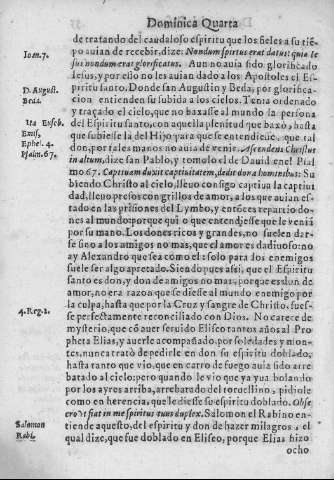 Dominica Quarta
de tratando del caudaloso espiritu que los fieles a su tiẽ
po auian de recebir, dize: Nondum spiritus erat datus: quia Ie
sus nondum erat glorificatus. Aun no auia sido glorificado
Iesus, y por ello no les auian dado a los Apostoles el Es
piritu santo. Donde san Augustin y Beda, por glorifica
cion entienden su subida a los cielos. Tenia ordenado
y traçado el cielo, que no baxasse al mundo la persona
del Espiritu santo, con aquella plenitud que baxò, hasta
que subiesse la del Hijo para que se entendiesse, que tal
don, por tales manos auia de venir. Ascendens Christus
in altum, dize san Pablo, y tomolo el de Dauid en el Psal
mo 67. Captiuam duxit captiuitatem, dedit dona hominibus: Su
biendo Christo al cielo, lleuo consigo captiua la captiui
dad, lleuo presos con grillos de amor, a los que auian es-
tado en las prisiones del Lymbo, y entõces repartio do-
nes al mundo: porque qui o que entendiesse que le venia
por su mano. Los dones ricos y grandes, no suelen dar-
se sino a los amigos no mas, que el amor es dadiuoso: no
ay Alexandro que sea como el: solo para los enemigos
suele ser algo apretado. Siendo pues assi, que el Espiritu
santo es don, y don de amigos no mas, porque es don de
amor, no era razon que se diesse al mundo enemigo por
la culpa, hasta que por la Cruz y sangre de Christo, fues-
se perfectamente reconciliado con Dios. No carece de
mysterio, que cõ auer seruido Eliseo tantos años al Pro
pheta Elias, y auerle acompañado, por soledades y mon-
tes, nunca tratò de pedirle en don su espiritu doblado,
hasta tanto que vio, que en carro de fuego auia sido arre
batado al cielo: pero quando le vio que ya yua bolando
por los ayres arriba, arrebatado del toruellino, pidiole
como en herencia, que le diesse su espiritu doblado. Obse
cro vt fiat in me spiritus tuus duplex. Salomon el Rabino en-
tiende aquesto, del espiritu y don de hazer milagros, el
qual dize, que fue doblado en Eliseo, porque Elias hizo
ocho
Ioan. 7.
D. August.
Beda.
Ita Euseb.
Emis,
Ephes. 4.
Psalm. 67.
4. Reg. 2.
Salomon
Rabi.